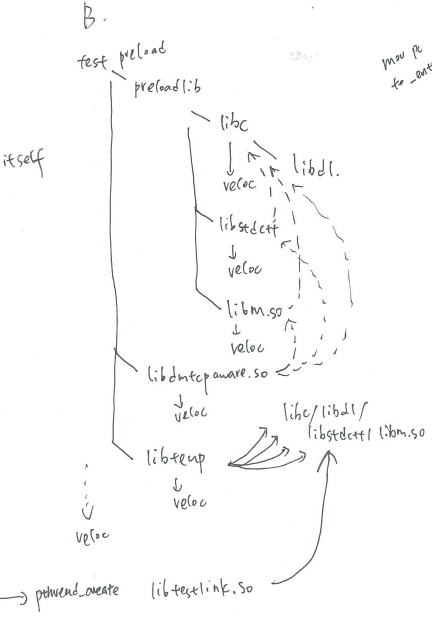 B.
test preload
preloadlib
mov pc
to _ent
libc
itself
libdl.
veloc
libstdc++
veloc
libm.so
veloc
libdmtcpaware.so
veloc
libc/libdl/
libstdc++/ libm.so
libtemp
veloc
veloc
pthread_create libtestlink.so